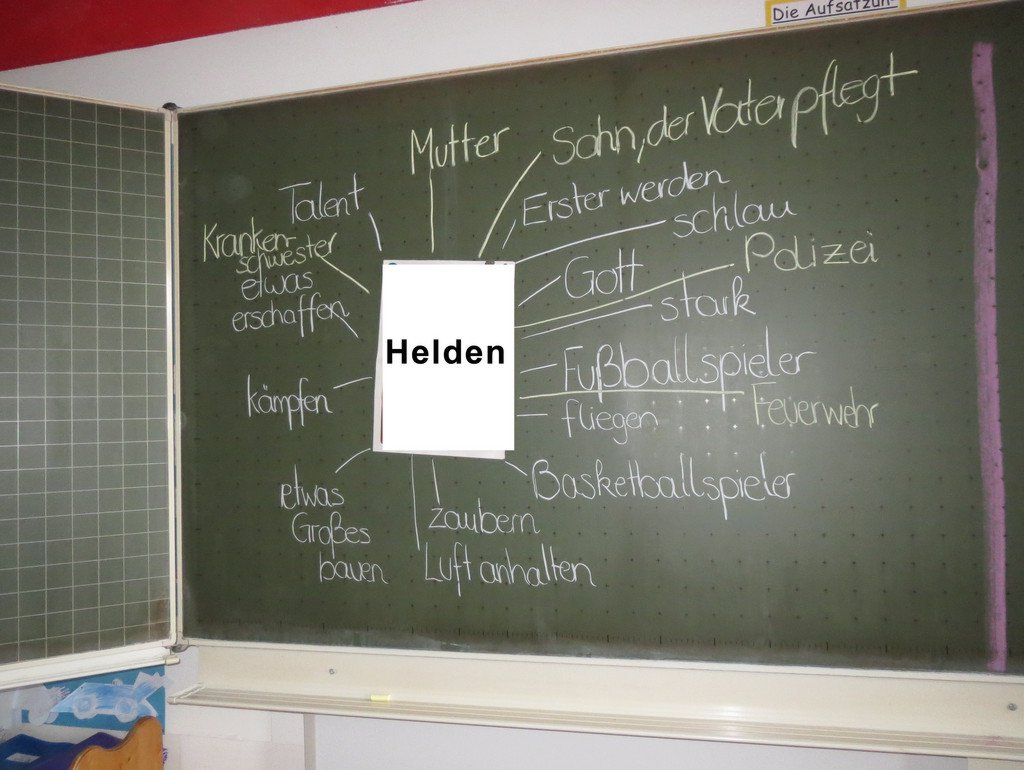 Die Aufsatzun-
Mutter
Sohn, der Vater pflegt
Talent
Erster werden
schlau
Kranken-
schwester
Polizei
etwas
erschaffen
Gott
stark
Helden
Fußballspieler
kämpfen
fliegen
Feuerwehr
Basketballspieler
etwas
Großes
bauen
zaubern
Luft anhalten